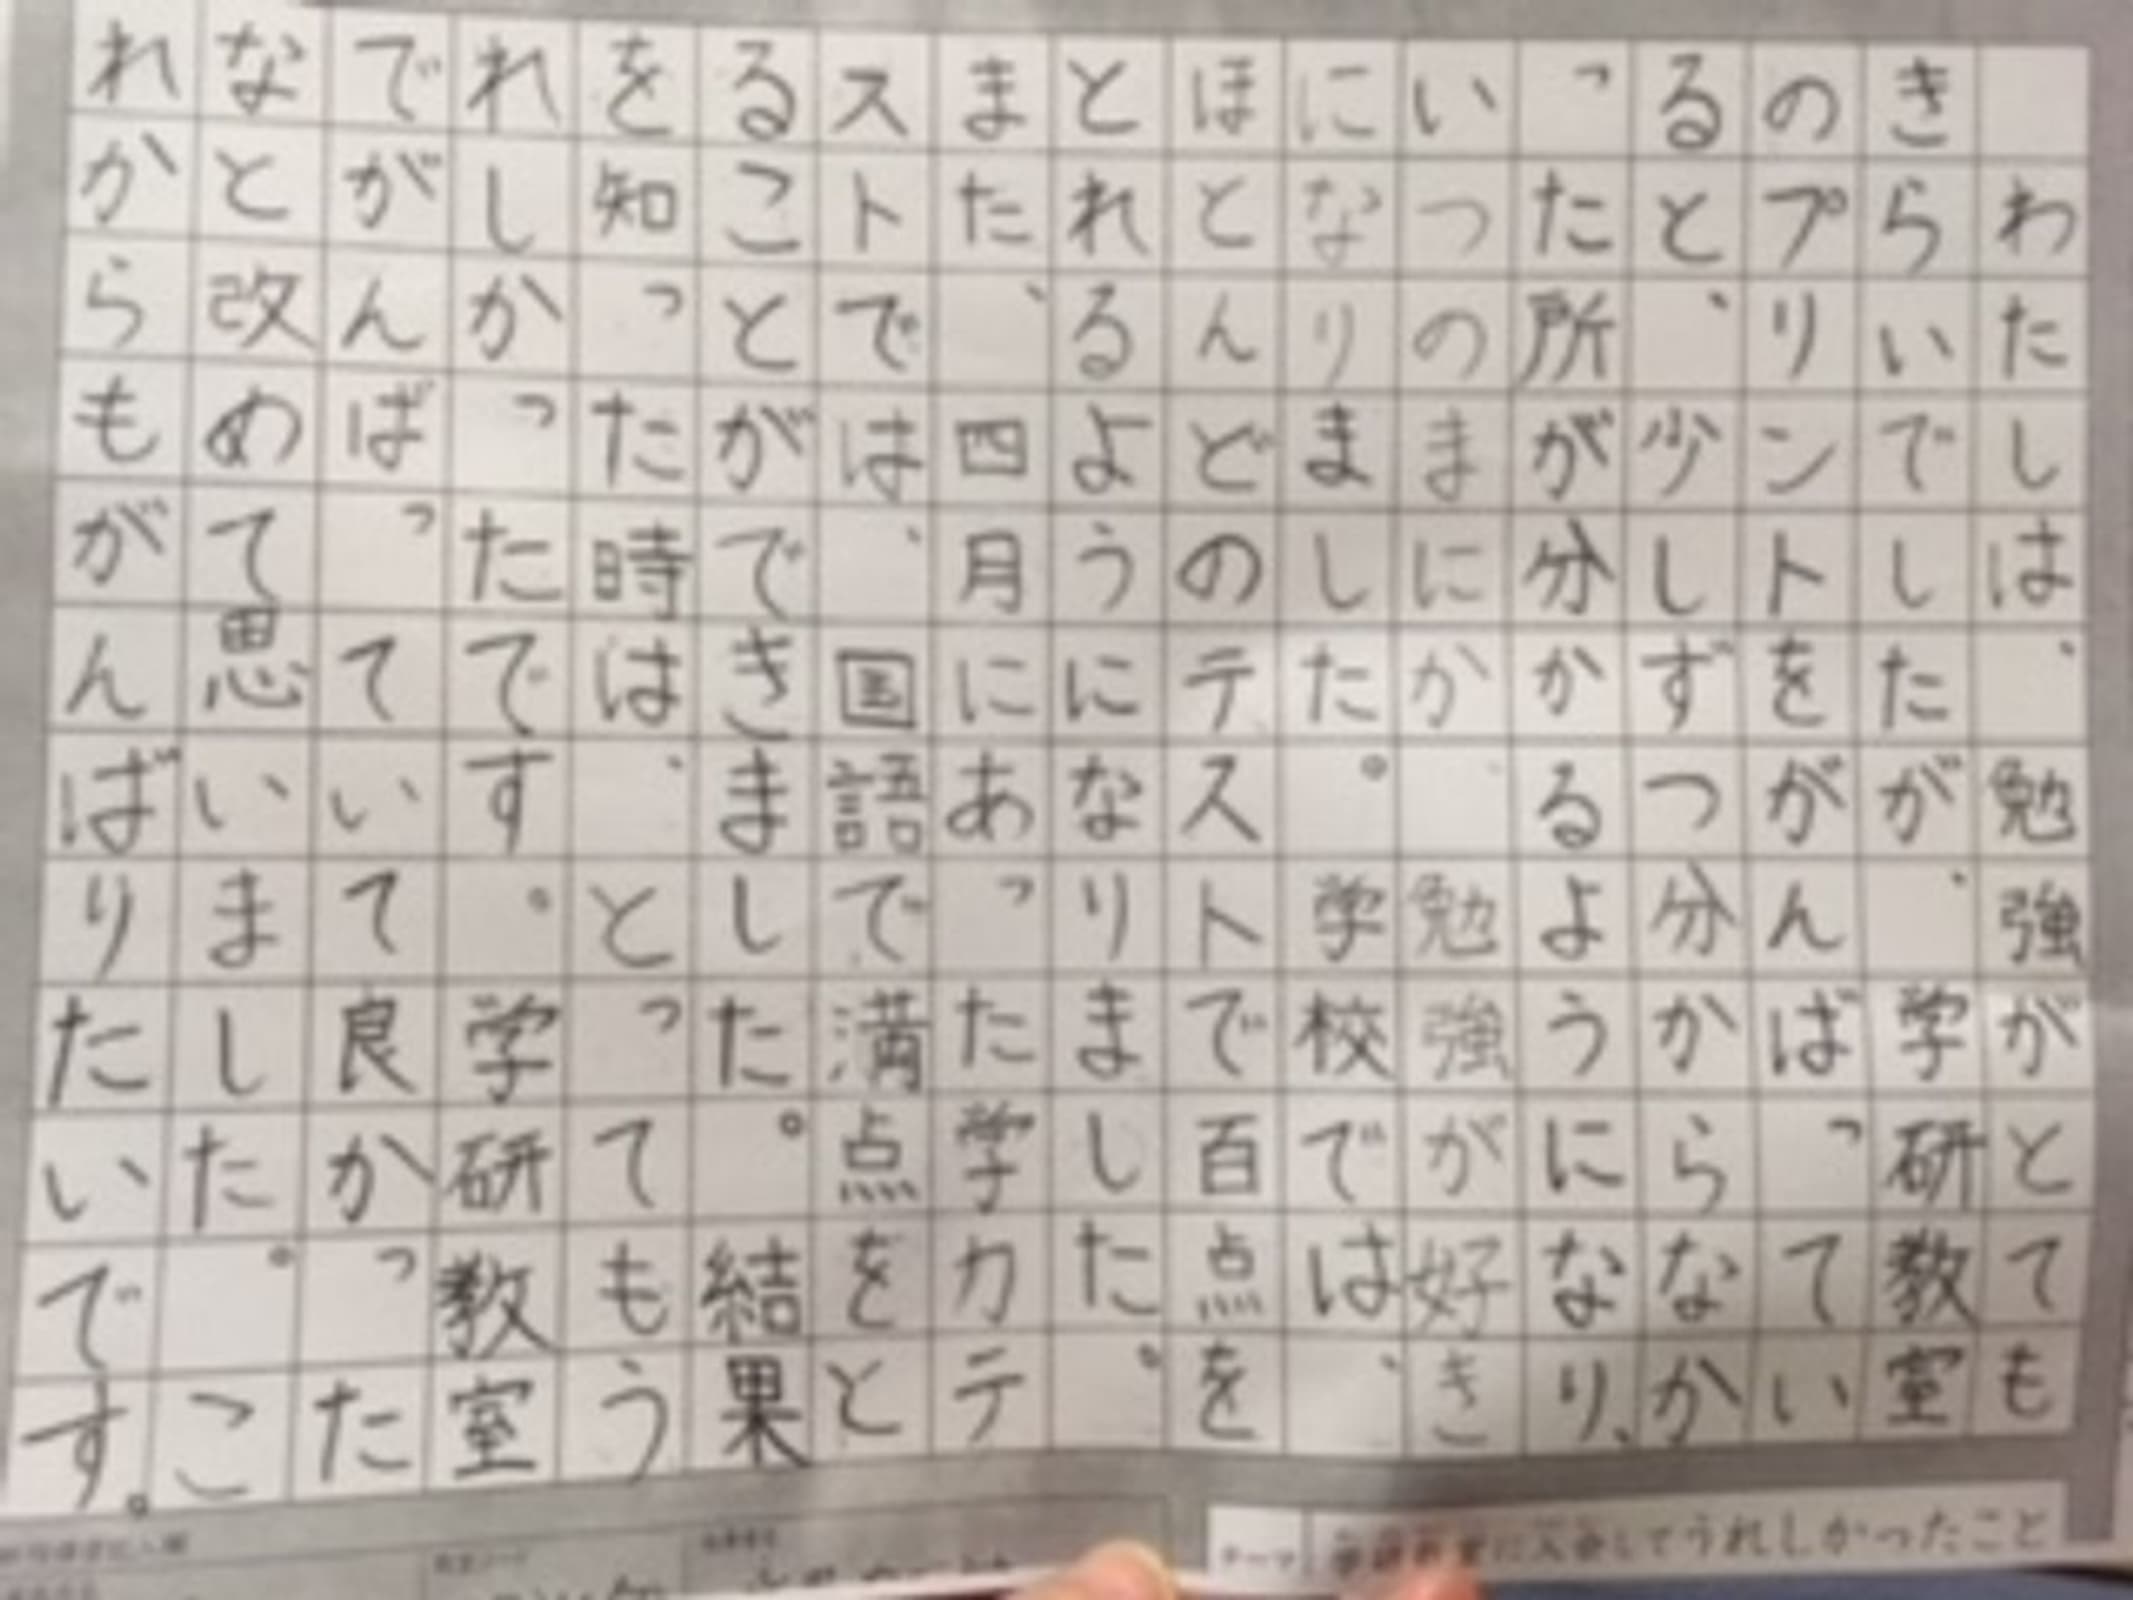 わたしは、勉強がとても
きらいでしたが、学研教室
のプリントをがんばってい
ると、少しずつ分からなか
った所が分かるようになり、
いつのまにか、勉強が好き
になりました。学校では、
ほとんどのテストで百点を
とれるようになりました。
また、四月にあった学力テ
ストでは、国語で満点をと
ることができました。結果
を知った時は、とってもう
れしかったです。学研教室
でがんばっていて良かった
なと改めて思いました。こ
れからもがんばりたいです。
テーマ 学研教室に入会してうれしかったこと